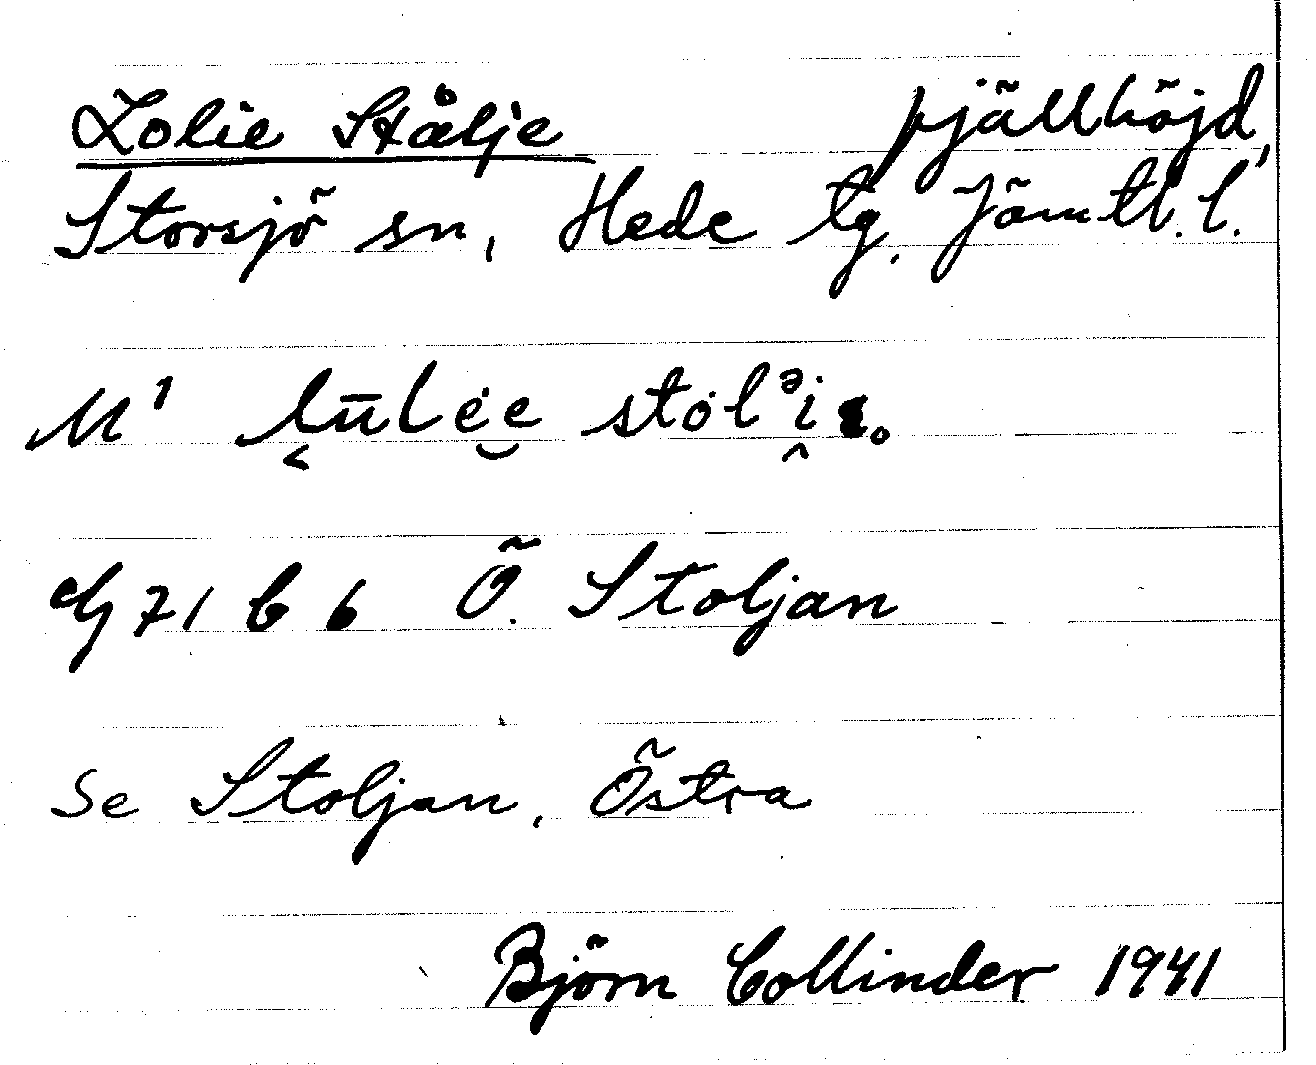 Lolie Stålje fjällhöjd,
Storsjö sn, Hede tg. Jämtl. l.
M' l̬ūlėe̮ stȯlᵊi̭.
G 71 b 6 Ö. Stoljan
Se Stoljan, Östra
Björn Collinder 1941